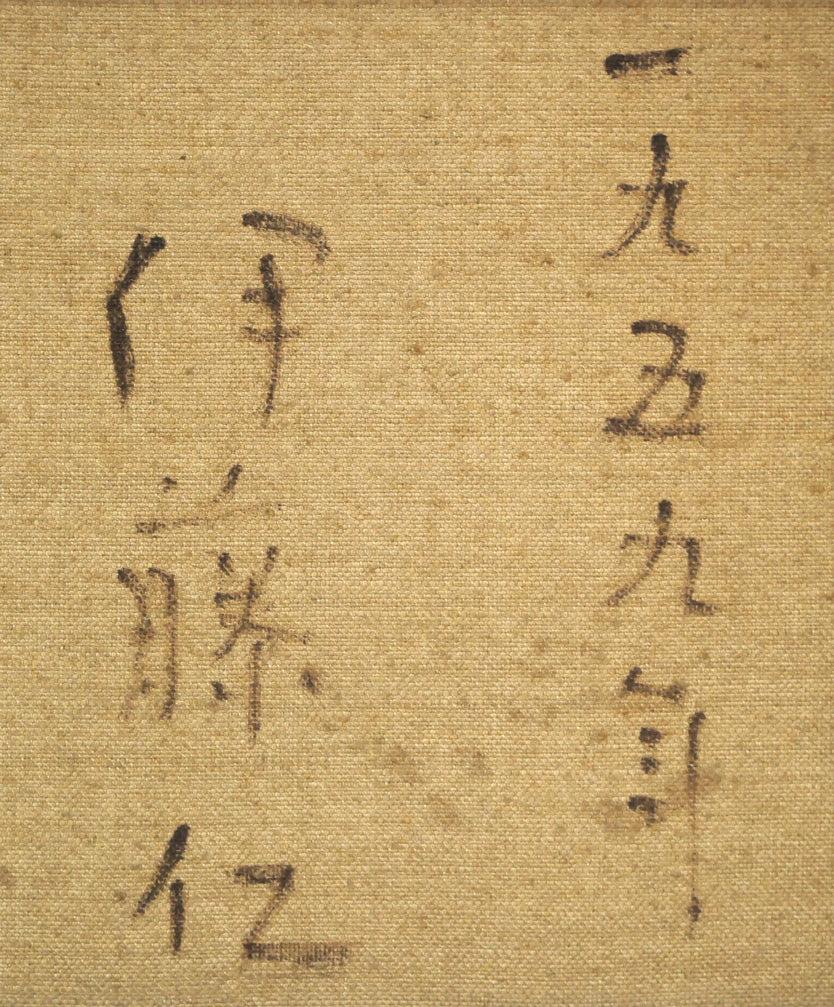 一九五九年
伊藤仁